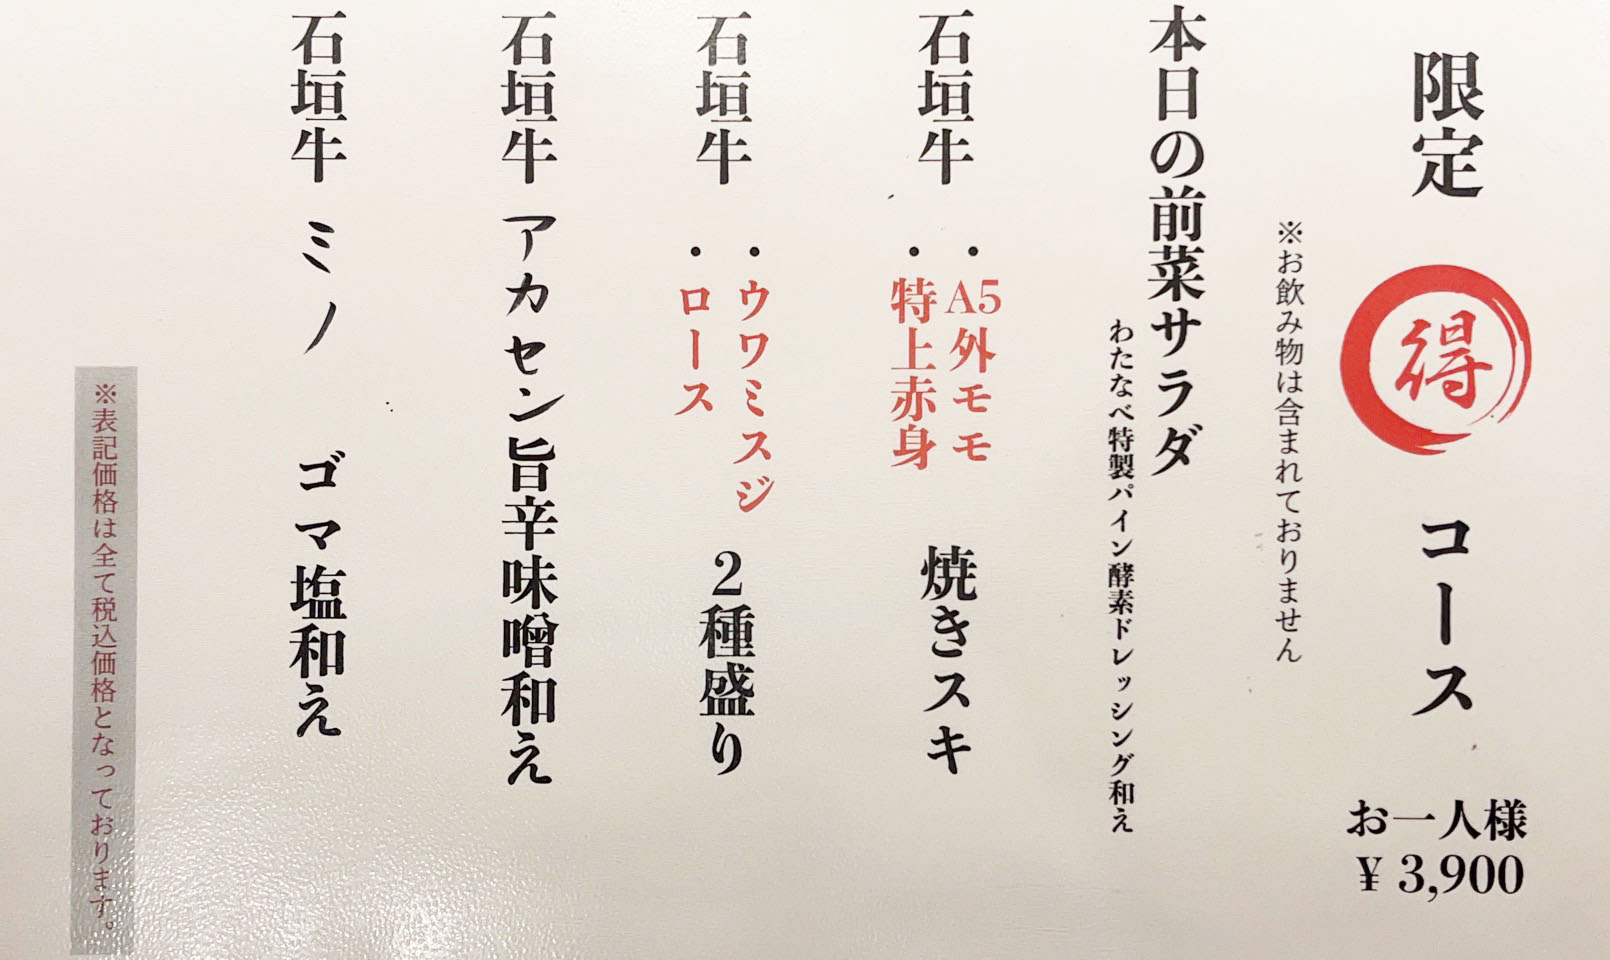 限定 得 コース
お一人様
¥3,900
※お飲み物は含まれておりません
本日の前菜サラダ
わたなべ特製パイン酵素ドレッシング和え
石垣牛 ・A5外モモ
・特上赤身 焼きスキ
石垣牛 ・ウワミスジ
・ロース 2種盛り
石垣牛 アカセン旨辛味噌和え
石垣牛 ミノ ゴマ塩和え
※表記価格は全て税込価格となっております。